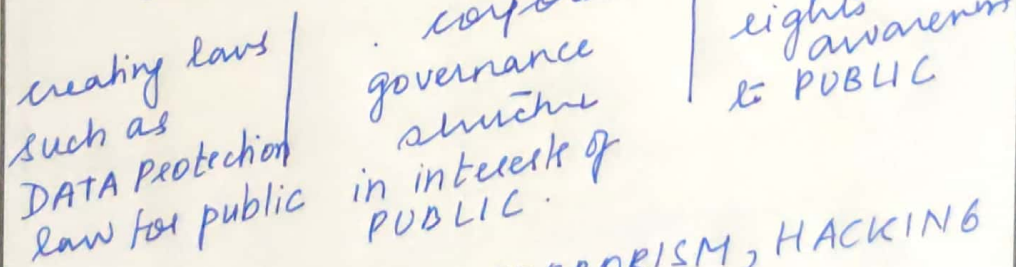 creating laws
such as
DATA Protection
law for public
governance
structure
in interests of
PUBLIC.
rights
awareness
to PUBLIC
, HACKING